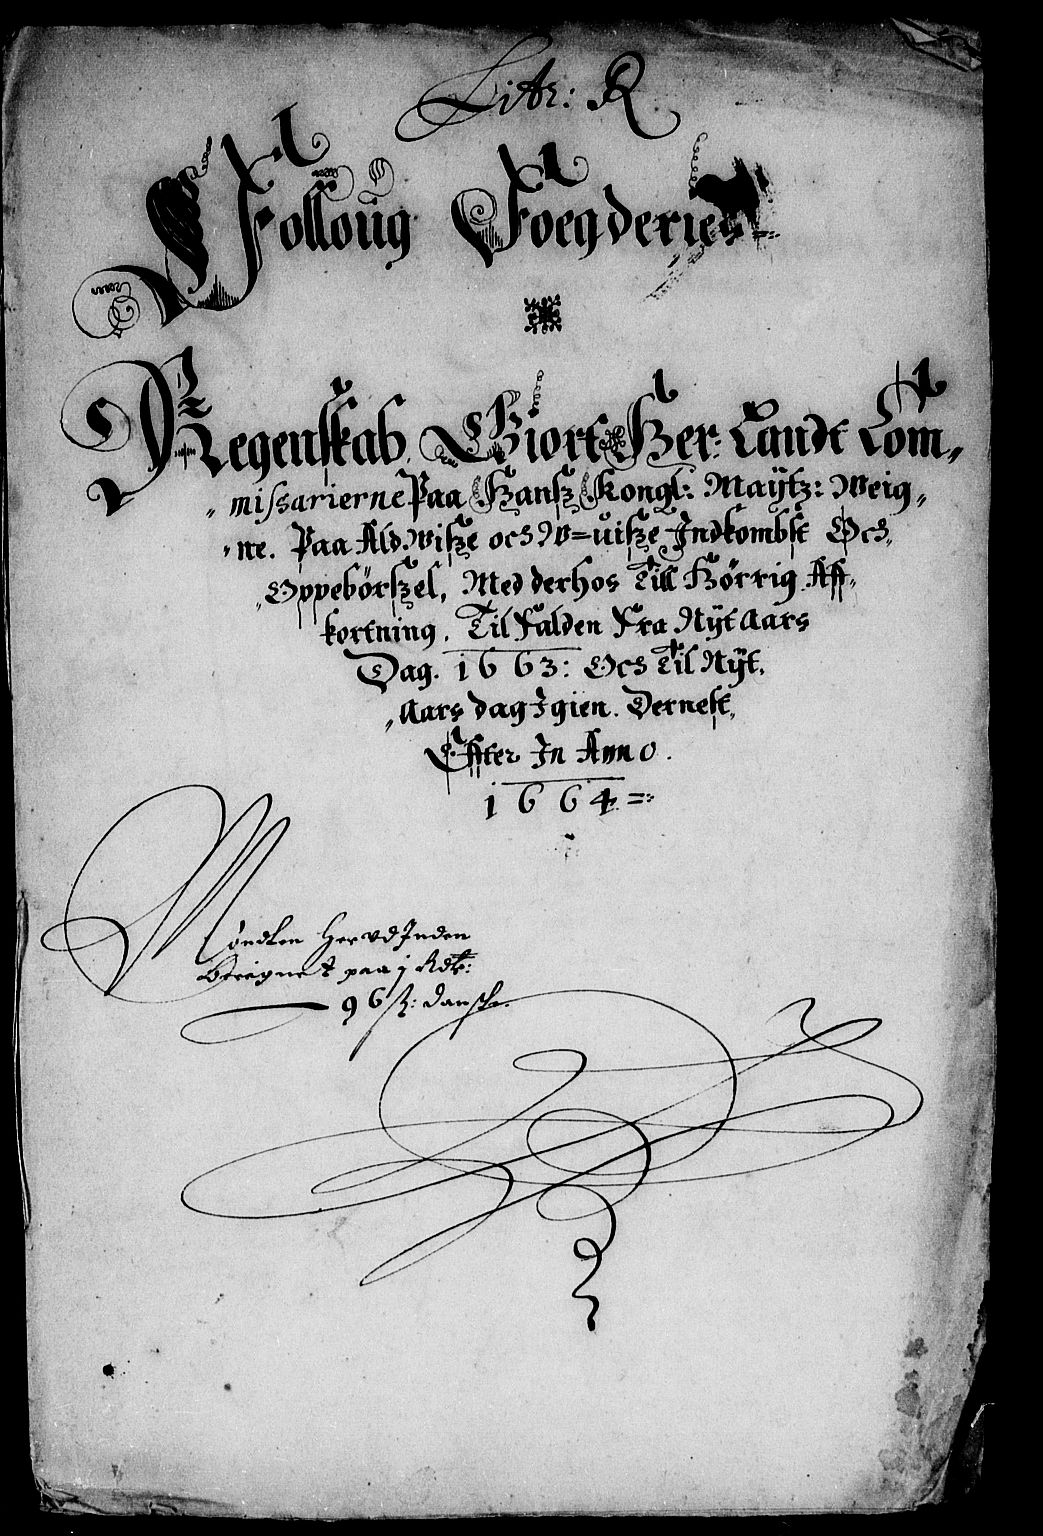 Litr: R
Folloug Foegderies
Regenskab Giort Her: Landt Com„
„missarierne Paa Hansz Kongl: Maÿtz: Weig„
„ne. Paa Ald Wisze och W=uisze Indkombst Och„
„Oppebörszel, Med derhos Till Hörrig Aff„
kortning. Til Falden Fra Nÿt Aars
Dag. 1663: Och Til Nÿt,
„Aars dag Igien. Dernest„
Effter In Anno.
1664
Möndten Her udInden
Beregnet paa j Rdlr:
96 sz: danscher